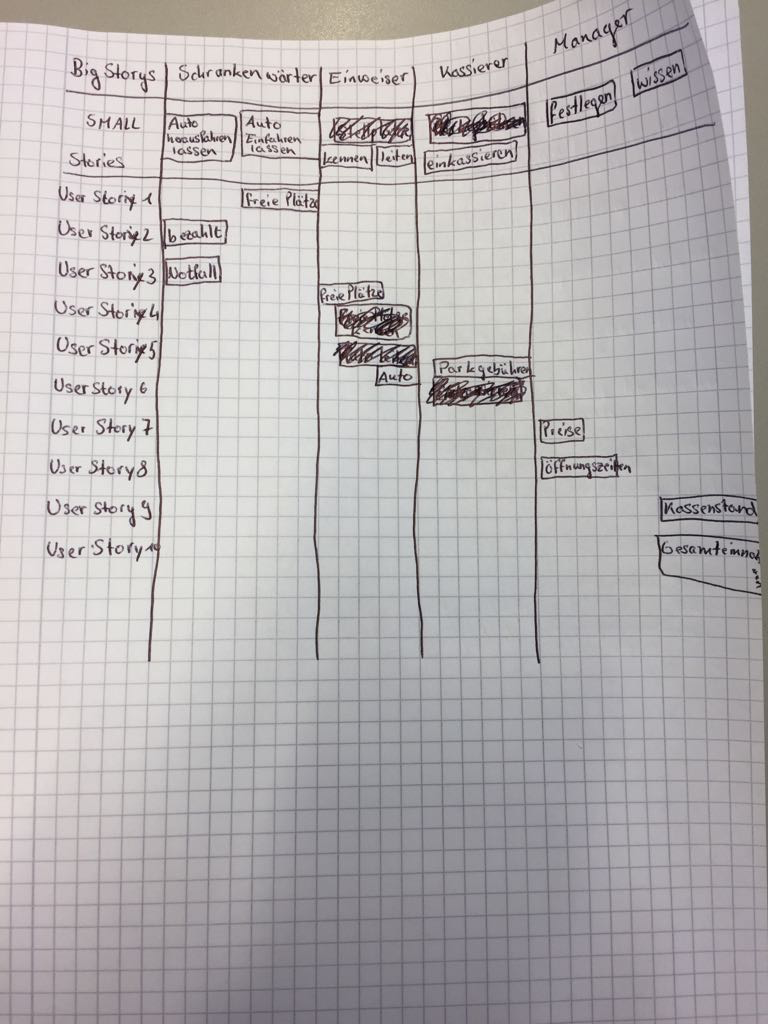 Big Storys Schrankenwärter Einweiser Kassierer Manager
SMALL Stories
Auto herausfahren lassen
Auto Einfahren lassen
kennen leiten
einkassieren
festlegen wissen
User Story 1 freie Plätze
User Story 2 bezahlt
User Story 3 Notfall
freie Plätze
User Story 4
User Story 5
Auto
Parkgebühren
User Story 6
User Story 7 Preise
User Story 8 Öffnungszeiten
User Story 9 Kassenstand
User Story 10